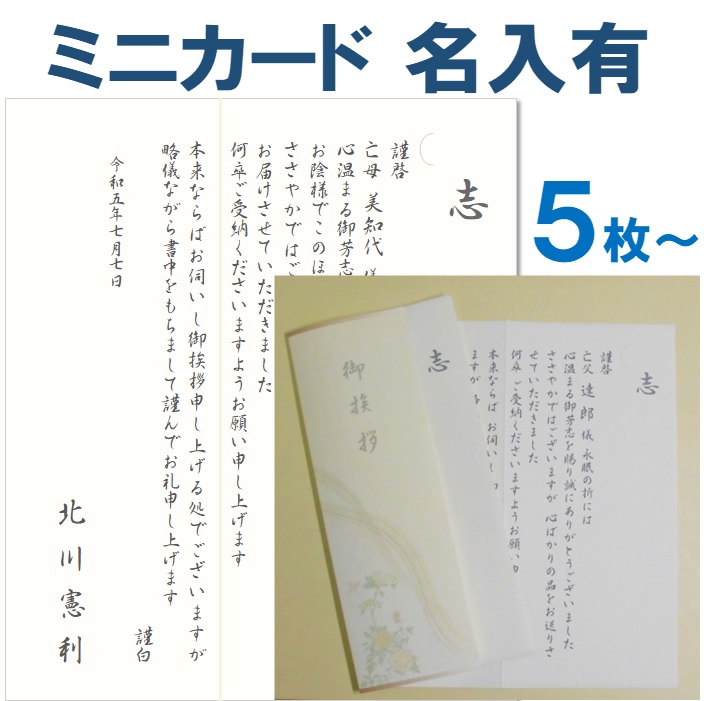 ミニカード 名入有
志
謹啓
亡母 美知代
心温まる御芳志
お陰様でこのほ
ささやかではご
お届けさせていただきました
何卒ご受納くださいますようお願い申し上げます
本来ならばお伺いし御挨拶申し上げる処でございますが
略儀ながら書中をもちまして謹んでお礼申し上げます
謹白
令和五年七月七日
北川憲利
5枚～
志
謹啓
亡父 達郎 儀 永眠の折には
心温まる御芳志を賜り誠にありがとうございました
ささやかではございますが 心ばかりの品をお送りさ
せていただきました
何卒 ご受納くださいますようお願い
本来ならば お伺いし
ますが
志
御挨拶